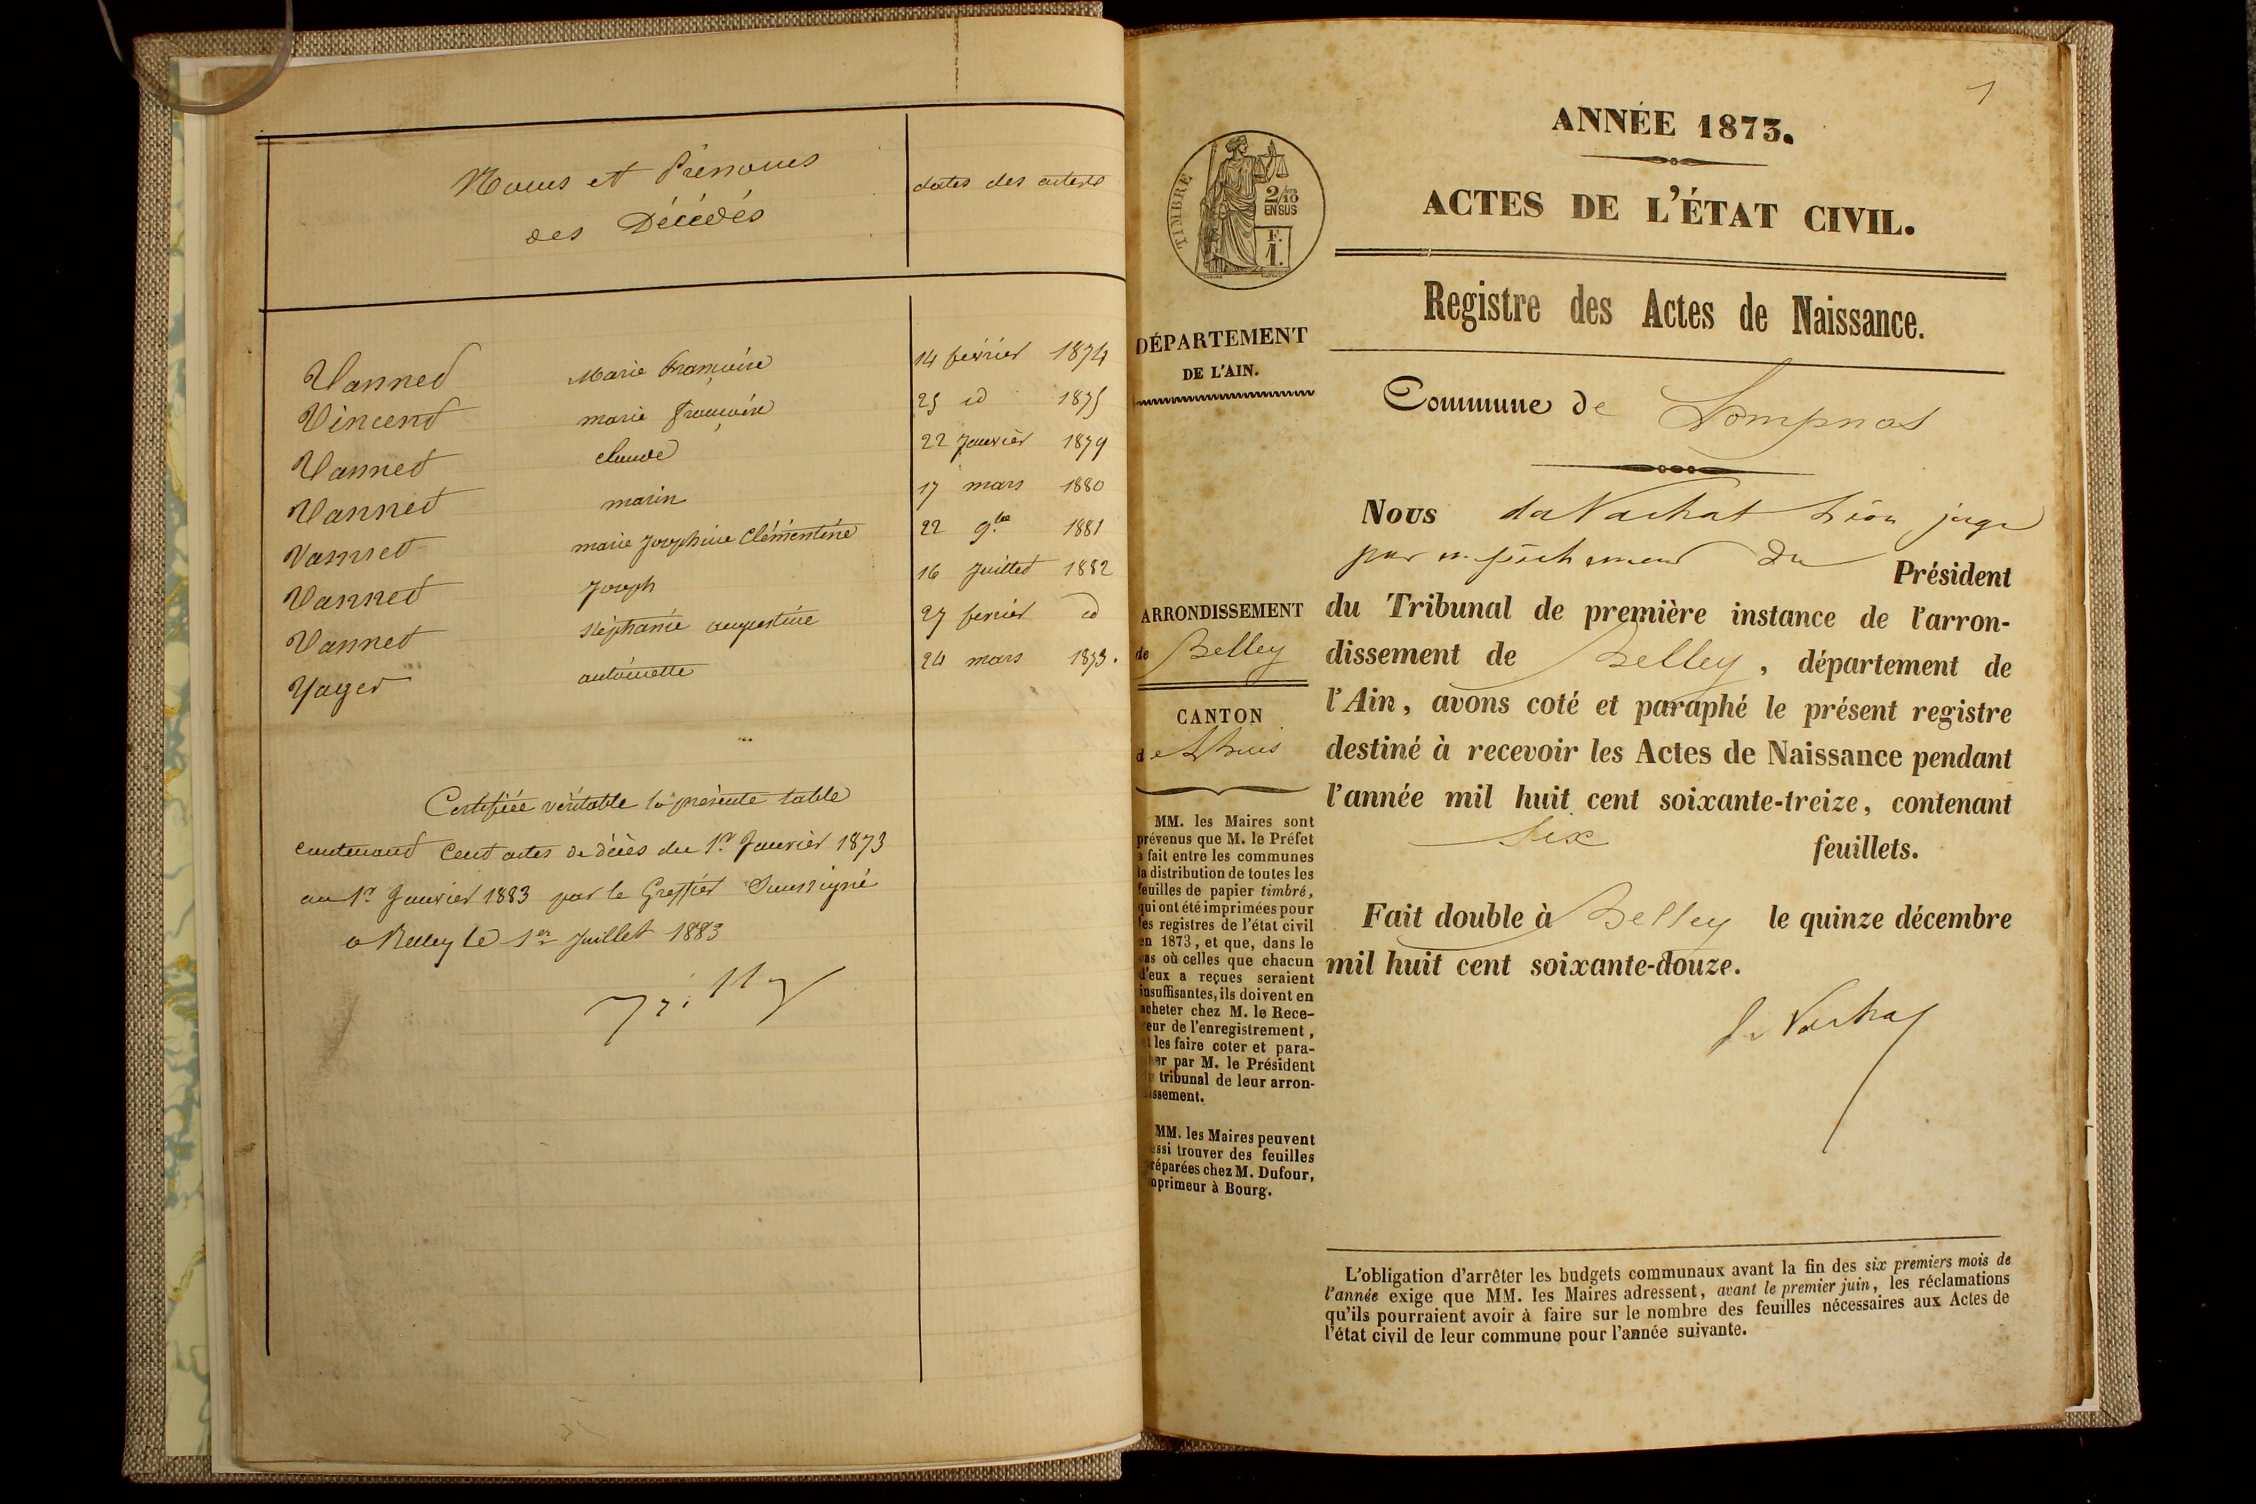 Noms et Prénoms
des Décédés
dates des actes
Vannet Marie Françoise 14 février 1874
Vincent marie Françoise 25 id 1875
Vannet claude 22 Janvier 1879
Vannet marin 17 mars 1880
Vannet marie Joséphine Clémentine 22 9bre 1881
Vannet Joseph 16 Juillet 1882
Vannet Stéphanie augustine 27 fevrier id
Yager antoinette 24 mars 1873.
Certifiée véritable la présente table
contenant Cent actes de décès du 1er Janvier 1873
au 1er Janvier 1883 par le Greffier Soussigné
a Belley le 1er Juillet 1883
1
ANNÉE 1873.
ACTES DE L'ÉTAT CIVIL.
Registre des Actes de Naissance.
Commune de Lompnas
Nous du Vachat Léon juge
par empêchement du Président
du Tribunal de première instance de l'arron-
dissement de Belley, département de
l'Ain, avons coté et paraphé le présent registre
destiné à recevoir les Actes de Naissance pendant
l'année mil huit cent soixante-treize, contenant
Six feuillets.
Fait double à Belley le quinze décembre
mil huit cent soixante-douze.
du Vachat
L'obligation d'arrêter les budgets communaux avant la fin des six premiers mois de
l'année exige que MM. les Maires adressent, avant le premier juin, les réclamations
qu'ils pourraient avoir à faire sur le nombre des feuilles nécessaires aux Actes de
l'état civil de leur commune pour l'année suivante.
TIMBRE
2/10
EN SUS
F.
1.
DÉPARTEMENT
DE L'AIN.
ARRONDISSEMENT
de Belley
CANTON
de Lhuis
MM. les Maires sont
prévenus que M. le Préfet
a fait entre les communes
la distribution de toutes les
feuilles de papier timbré,
qui ont été imprimées pour
les registres de l'état civil
en 1873, et que, dans le
cas où celles que chacun
d'eux a reçues seraient
insuffisantes, ils doivent en
acheter chez M. le Rece-
veur de l'enregistrement,
et les faire coter et para-
pher par M. le Président
du tribunal de leur arron-
dissement.
MM. les Maires peuvent
aussi trouver des feuilles
préparées chez M. Dufour,
imprimeur à Bourg.